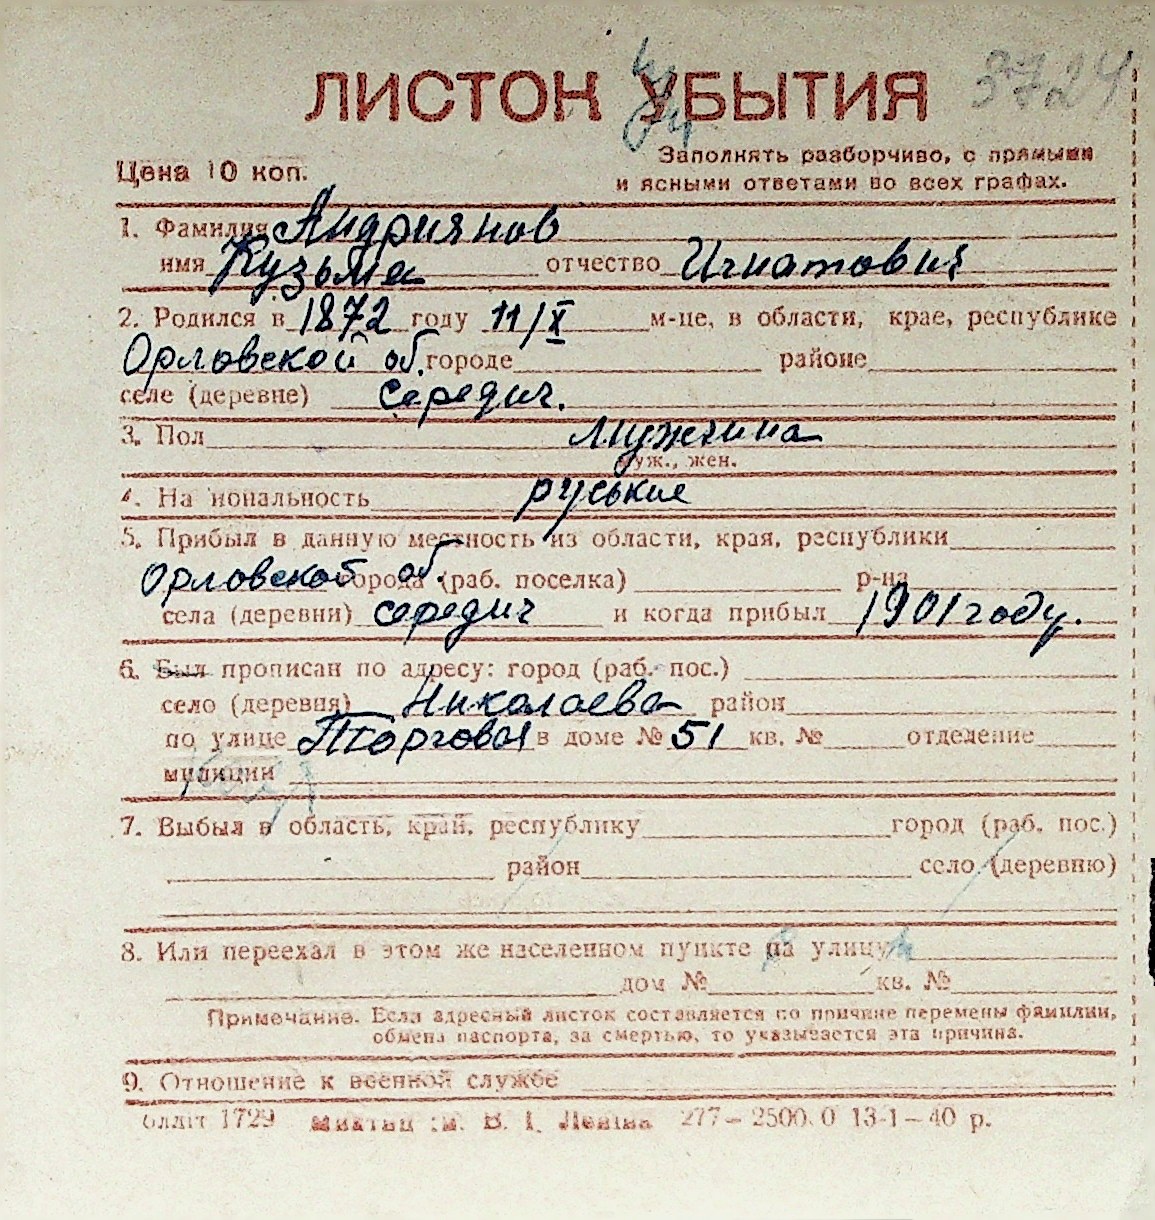 3724
ЛИСТОК УБЫТИЯ
Цена 10 коп.
Заполнять разборчиво, с прямыми
и ясными ответами во всех графах.
1. Фамилия Андриянов
имя Кузьма отчество Игнатович
2. Родился в 1872 году 11/X м-це, в области, крае, республике
Орловской об. городе районе
селе (деревне) середич.
3. Пол мужчина
муж., жен.
4. На иональность руськие
5. Прибыл в данную местность из области, края, республики
Орловской об. города (раб. поселка) р-на
села (деревни) середич и когда прибыл 1901 году.
6. Был прописан по адресу: город (раб. пос.)
село (деревня) Николаева район
по улице Торговая в доме № 51 кв. № отделение
милиции
7. Выбыл в область, край, республику город (раб. пос.)
район село (деревню)
8. Или переехал в этом же населенном пункте на улицу
дом № кв. №
Примечание. Если адресный листок составляется по причине перемены фамилии,
обмена паспорта, за смертью, то указывается эта причина.
9. Отношение к военной службе
1729 В. І. Леніна 277—2500.0 13-1—40 р.